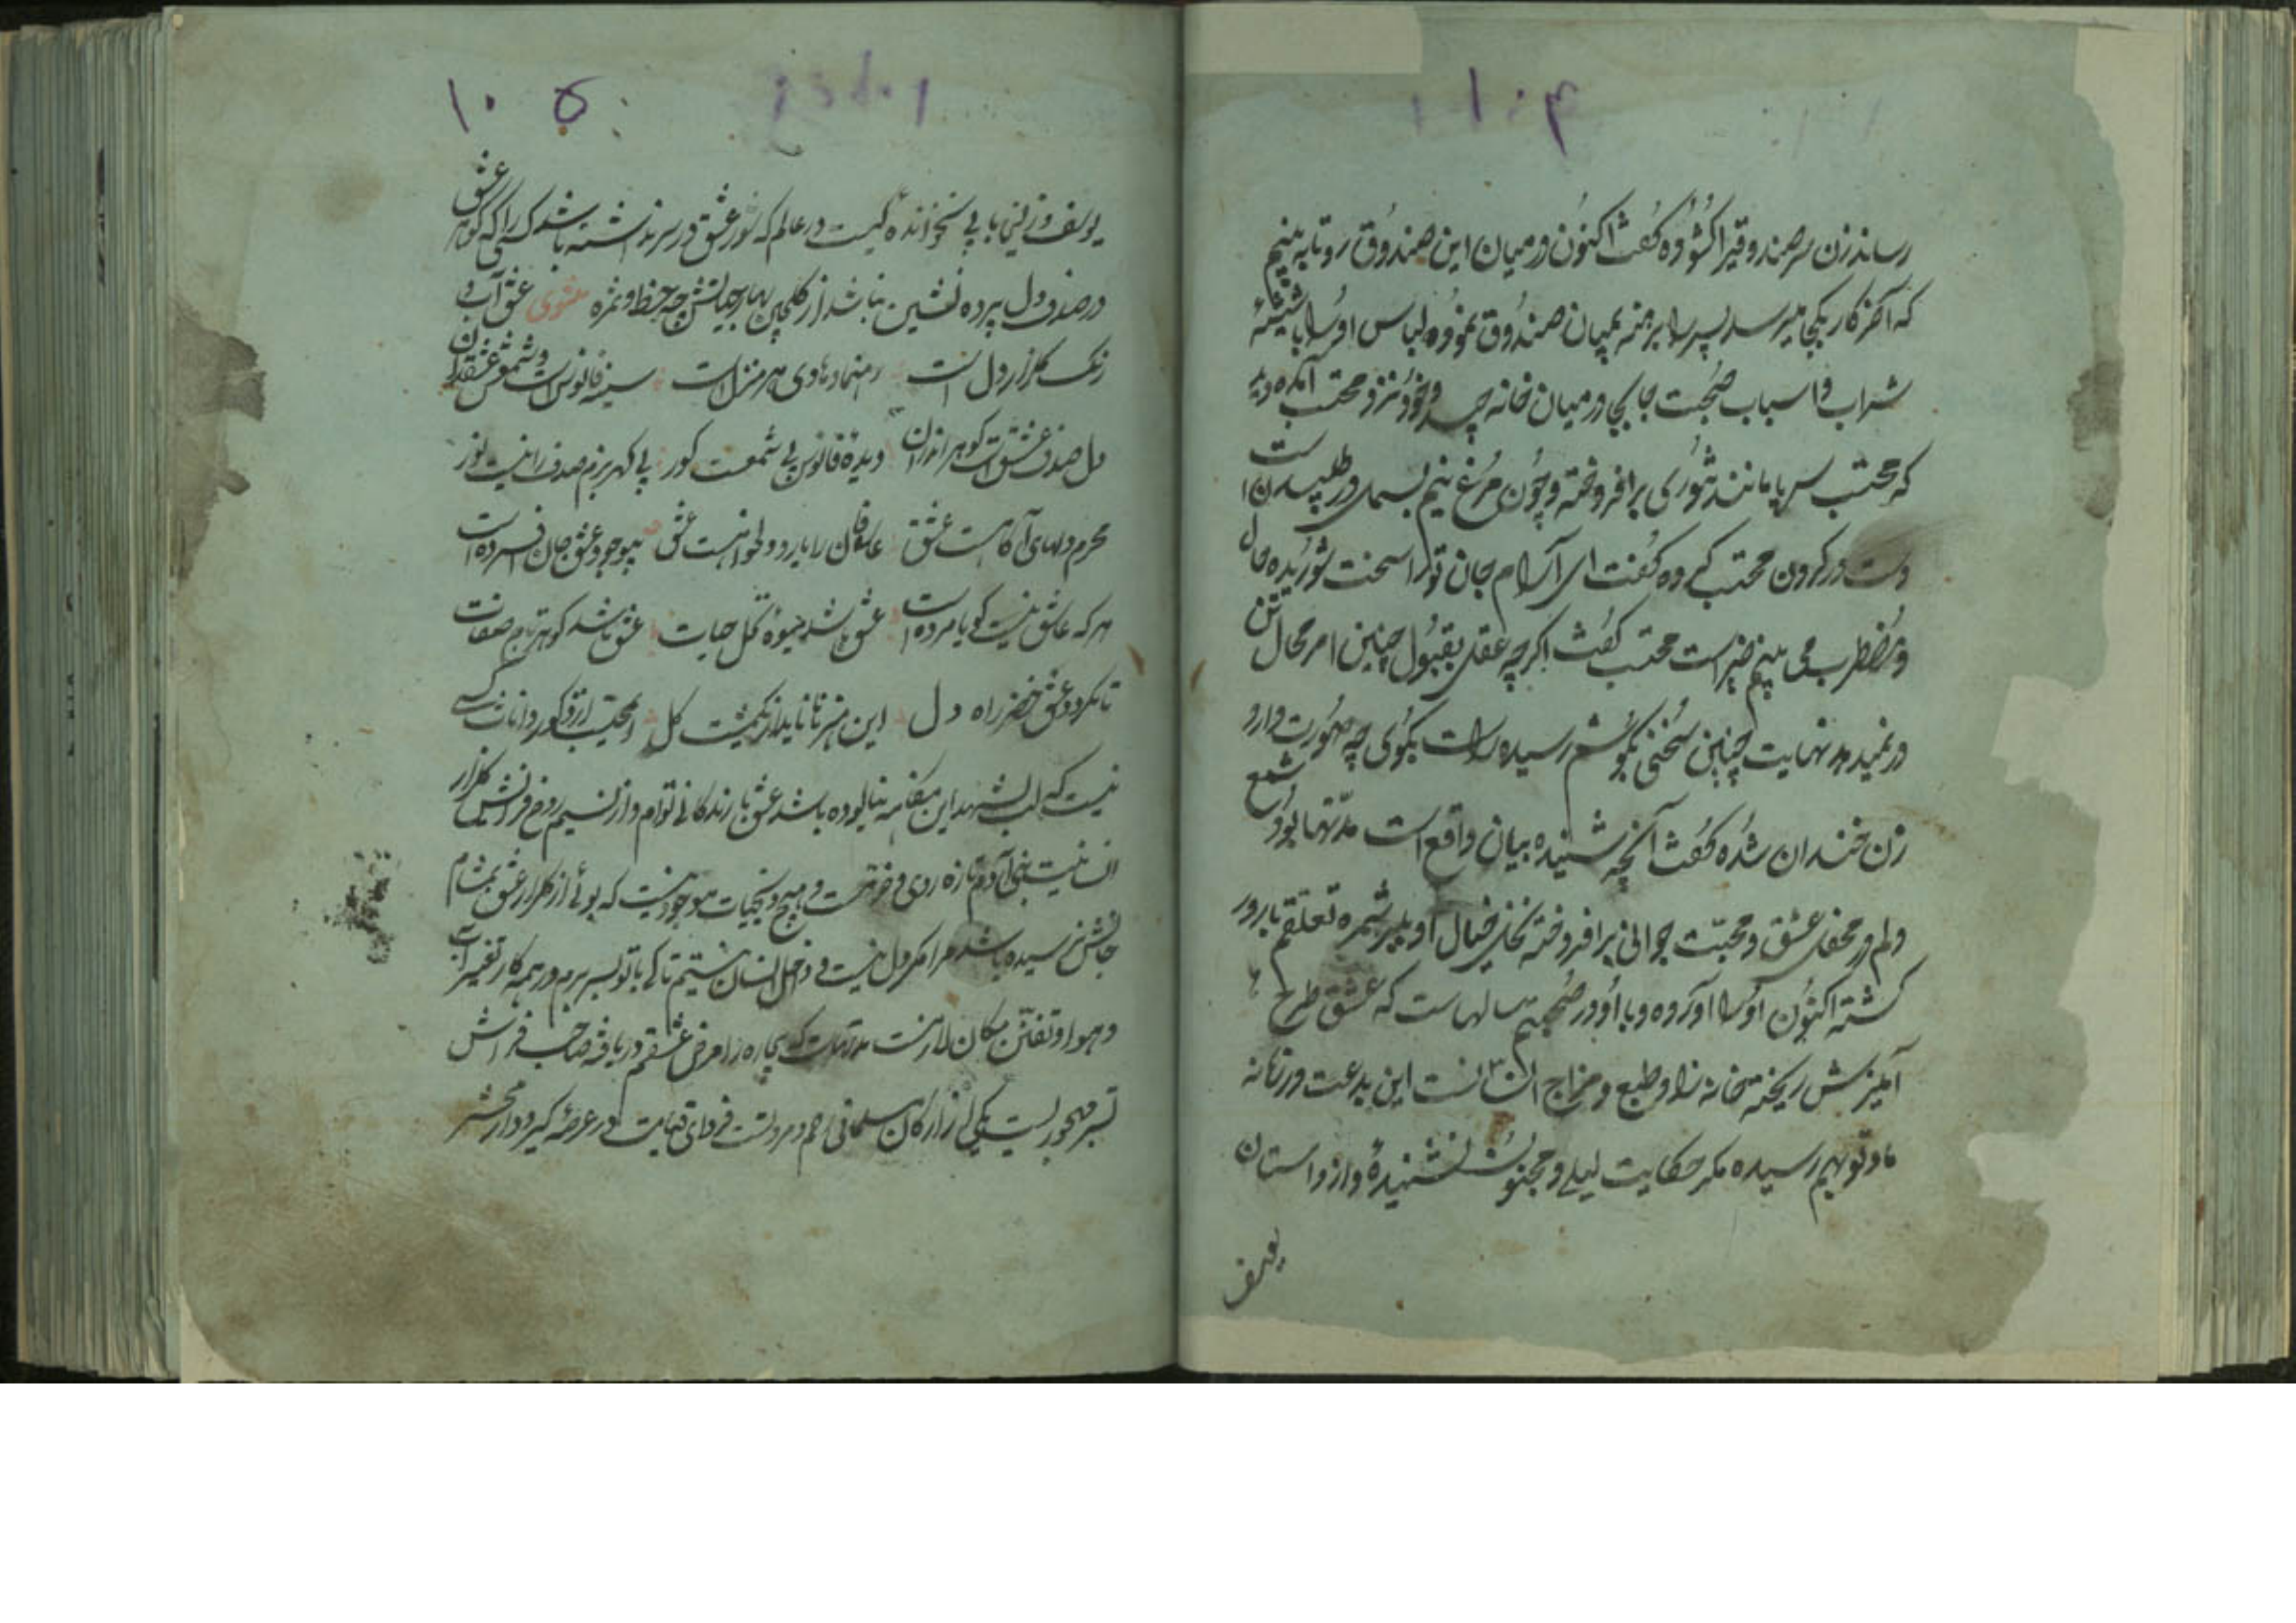 رساند زن سر صندوقیرا کشوده کفت اکنون در میان این صندوق رو تا به بینیم
که آخر کار بکجا میرسد پسر را برهنه بمیان صندوق نموده لباس او را با شیشهٔ
شراب و اسباب صحبت جابجا در میان خانه چید و خود نزد محتسب آمده دید
که محتسب سراپا مانند تنوری برافروخته و چون مرغ نیم بسمل در طپیدن است
دست در کردن محتسب کرده کفت ای آرام جان تو را سخت شوریده حال
و مضطرب می بینم خیر است محتسب کفت اکرچه عقل بقبول چنین امر محال تن
در نمیدهد نهایت چنین سخنی بکوشم رسیده راست بکوی چه صورت دارد
زن خندان شده کفت آنچه شنیده بیان واقع است مدتها بود شمع
دلم در محفل عشق و محبت جوانی برافروخته نخل خیال او بثمره تعلقم بارور
کشته اکنون او را آورده و با او در صحبتم سالهاست که عشق طرح
آمیزش ریخته خانه زاد طبع و مزاج انسانست این بدعت در زمانه
ما و تو بهم رسیده مکر حکایت لیلی و مجنون نشنیدهٔ و از داستان
یوسف
۱۰۵
یوسف و زلیخا بابی نخوانده کیست در عالم که شور عشق در سر نداشته باشد کسی را که کوهر عشق
در صدف دل پرده نشین نباشد از کلچین بهار حیاتش چه حظ و ثمره مثنوی عشق آب و
رنک کلزار دل است رهنما و هادی هر منزل است سینه فانوس است و شمعش عشق دان
دل صدف عشق است کوهر اندر آن دیدهٔ فانوس بی شمعست کور بی کهر بزم صدف را نیست نور
محرم دلهای آکاهست عشق عاشقان را یار دولتخواهست عشق بیوجود عشق جان افسرده است
هر که عاشق نیست کویا مرده است عشق باشد میوه نخل حیات عشق باشد کوهر تاج صفات
تا نکردد عشق خضر راه دل این هنر تا ناید از یکمشت کل ای محتسب از ذکور و اناث کسی
نیست که لب بشهد این مقدمه نیالوده باشد عشق با زندکانی توام و از نسیم روح فزایش کلزار
انسانیت بنی آدم تازه روی و خرمست و هیچ ذیحیات موجود نیست که بوئی از کلزار عشق بمشام
جانش نرسیده باشد مرا مکر دل نیست و داخل انسان نیستم تا کی با تو بسر برم در همه کار تغییر آب
و هوا و تفنن مکان لازمست مدتهاست که بیچاره را مرض عشقم دریافته صاحب فراش
بستر مهجوریست یکی از ارکان مسلمانی رحم و مروتست فردای قیامت در عرصهٔ کیر و دار محشر